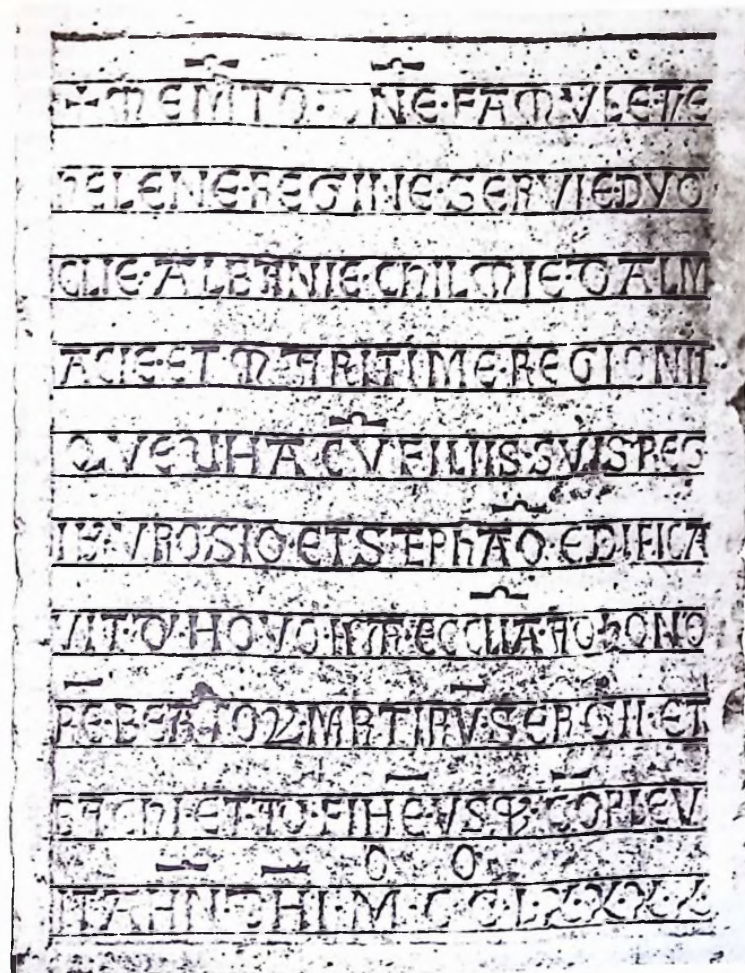 ✠ MEMTO · DNE · FAMVLE TVE
hELENE · REGINE · SERVIE DYO
CLIE · ALBANIE · ChILMIE · DALM
ACIE · ET MARITIME · REGIONU
QVE UHA CV FILIIS · SVIS REG
IB · VROSIO · ET STEPhAO · EDIFICA
VIT · D' HOVO · ECCLIA · AD hONO
RE · BEATOR MRTIRV · SERGII · ET
BAChI · ET · FIHE · VSQ · COPLEV
IT AHN · DHI · M · C C · L · X · X · X · X